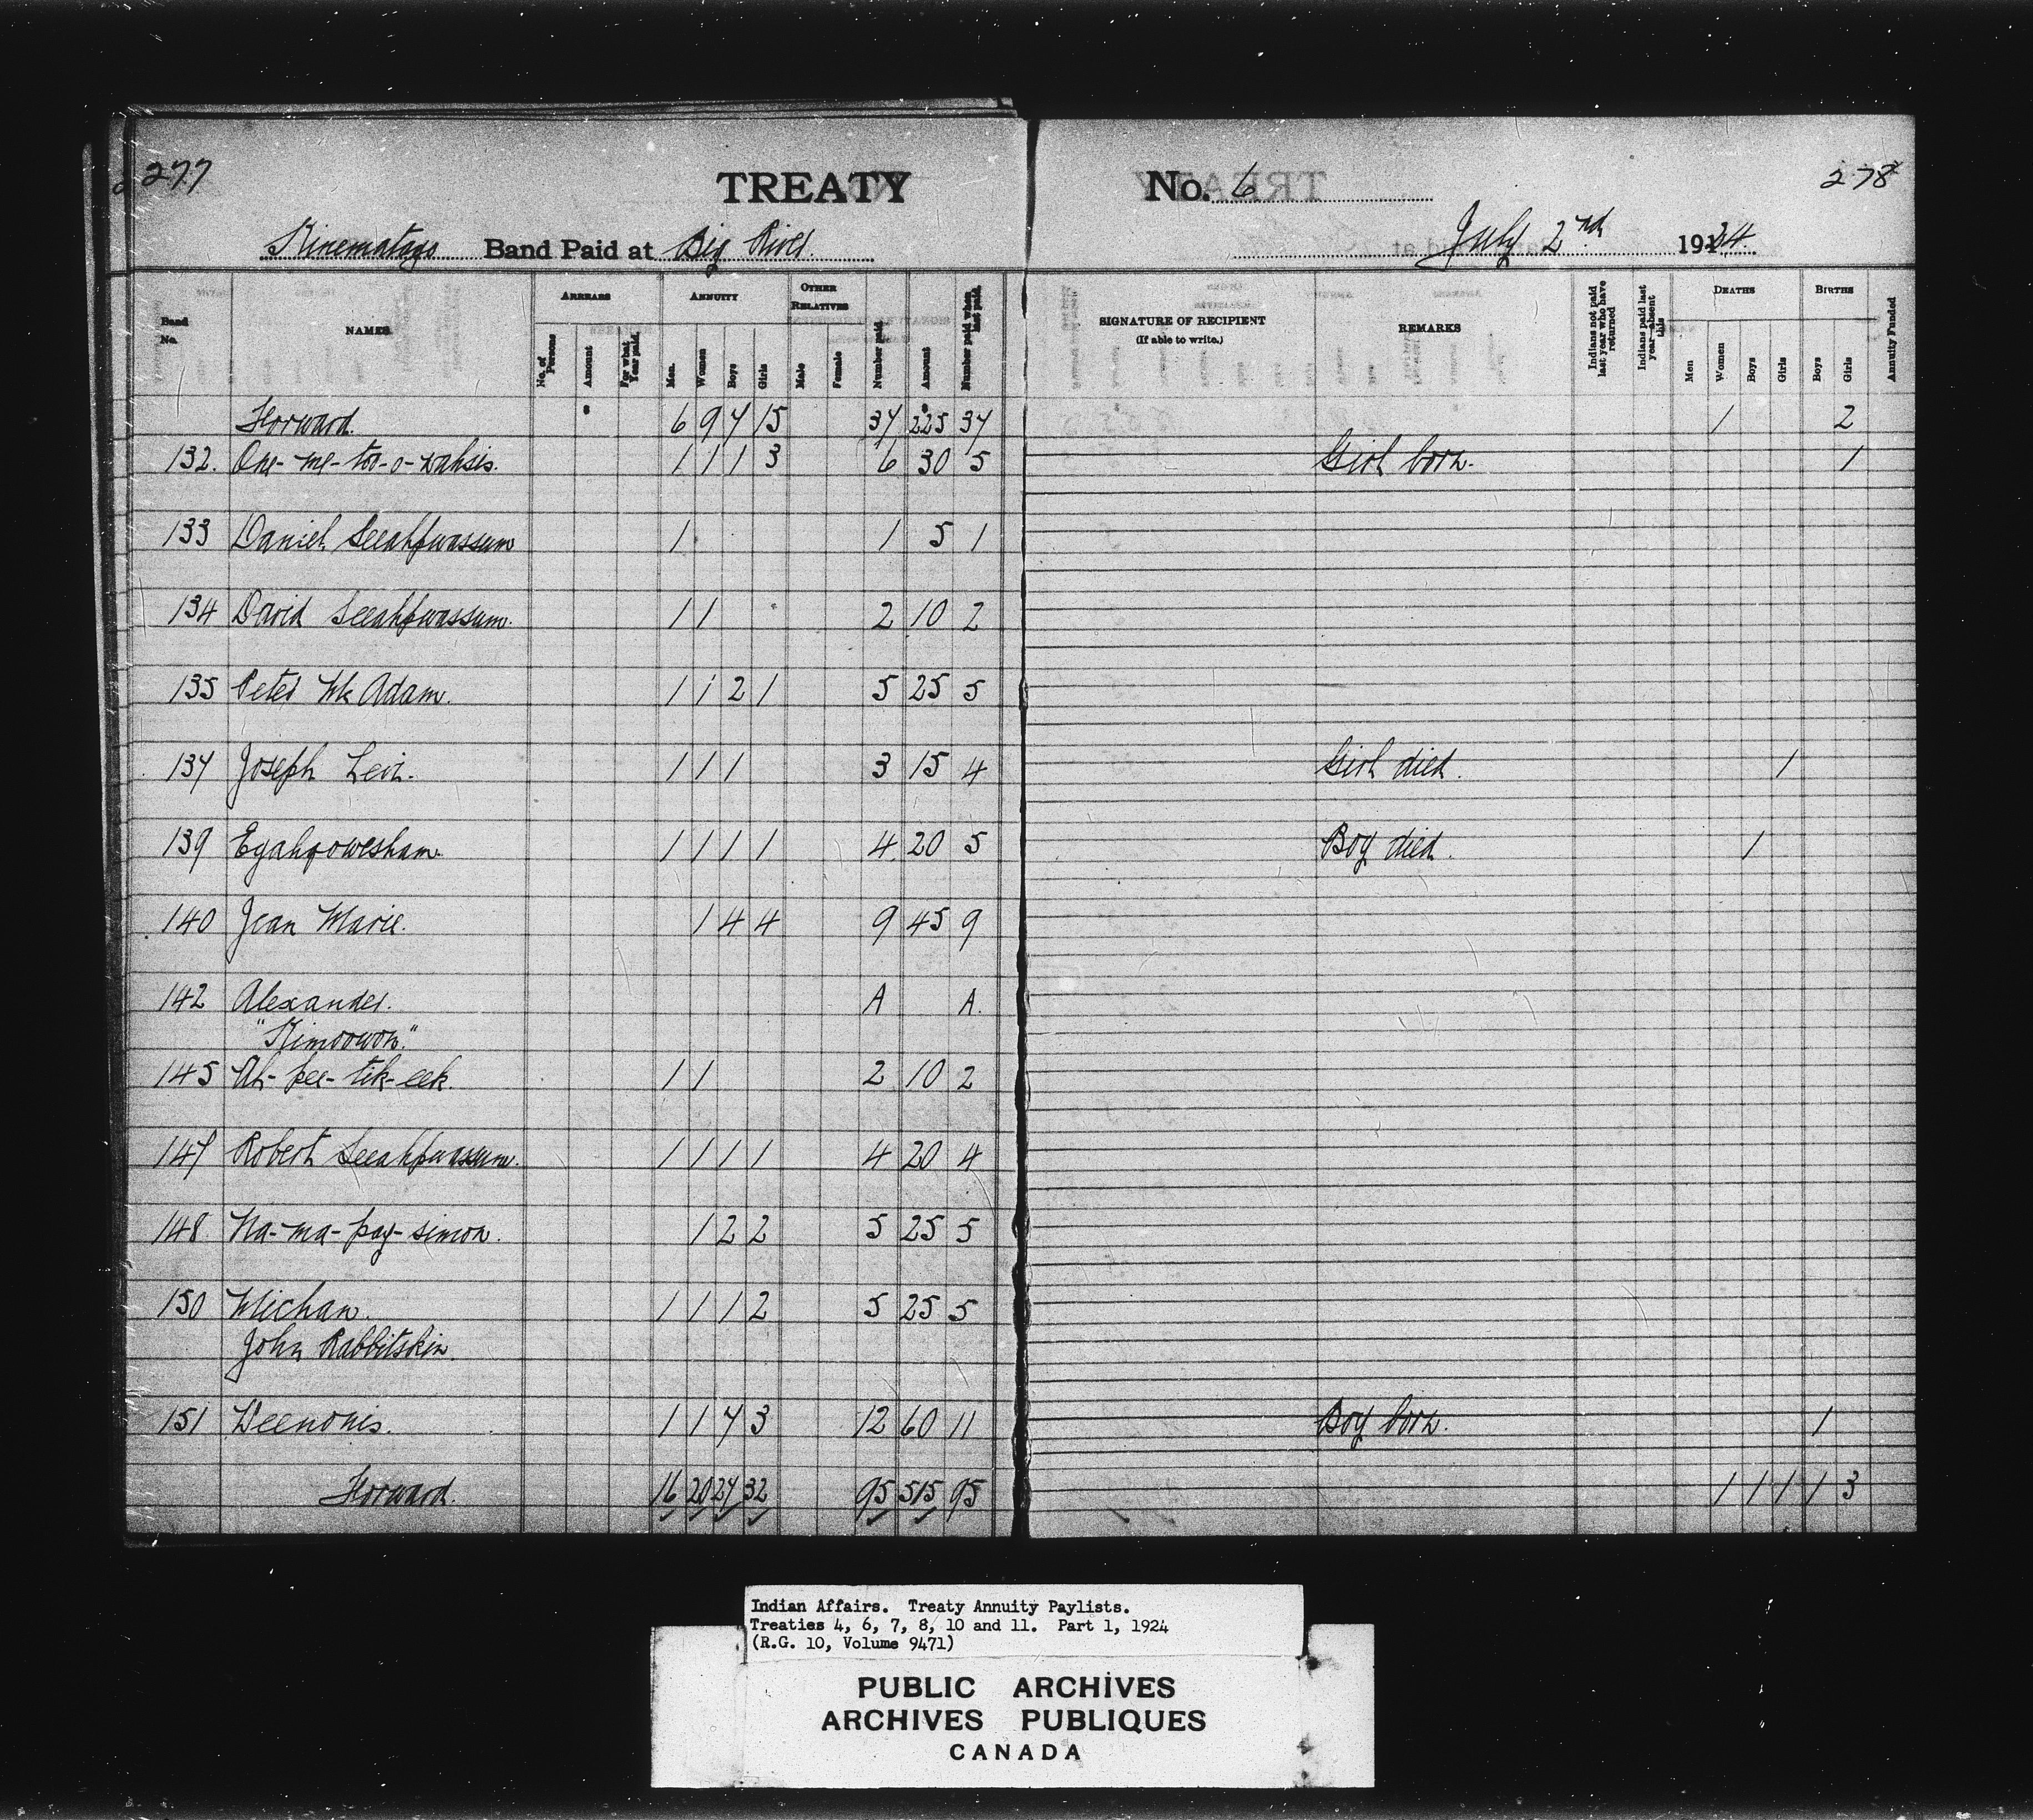 277
TREATY No. 6 278
Kinematayo Band Paid at Big River. July 2nd 1924
Band No. NAMES ARREARS ANNUITY OTHER RELATIVES Number paid Amount Number paid when last paid. SIGNATURE OF RECIPIENT (If able to write.) REMARKS Indians not paid last year who have returned Indians paid last year—absent this DEATHS BIRTHS Annuity Funded
No. of Persons Amount For what Year paid. Men. Women Boys Girls Male Female Men Women Boys Girls Boys Girls
Forward. 6 9 7 15 37 225 37 1 2
132. One-me-too-o-wahsis. 1 1 1 3 6 30 5 Girl born. 1
133 Daniel Seeahpwassum 1 1 5 1
134 David Seeahpwassum. 1 1 2 10 2
135 Peter Mc Adam. 1 1 2 1 5 25 5
137 Joseph Levi. 1 1 1 3 15 4 Girl died. 1
139 Eyahpowesham. 1 1 1 1 4 20 5 Boy died. 1
140 Jean Marie. 1 4 4 9 45 9
142 Alexander. A A.
"Kimoowon."
145 Ah-pee-tik-eek. 1 1 2 10 2
147 Robert Seeahpwassum. 1 1 1 1 4 20 4
148 Na-ma-pay-simon. 1 2 2 5 25 5
150 Michan 1 1 1 2 5 25 5
John Rabbitskin.
151 Weenonis. 1 1 7 3 12 60 11 Boy born. 1
Forward. 16 20 27 32 95 515 95 1 1 1 1 3
Indian Affairs. Treaty Annuity Paylists.
Treaties 4, 6, 7, 8, 10 and 11. Part 1, 1924
(R.G. 10, Volume 9471)
PUBLIC ARCHIVES
ARCHIVES PUBLIQUES
CANADA